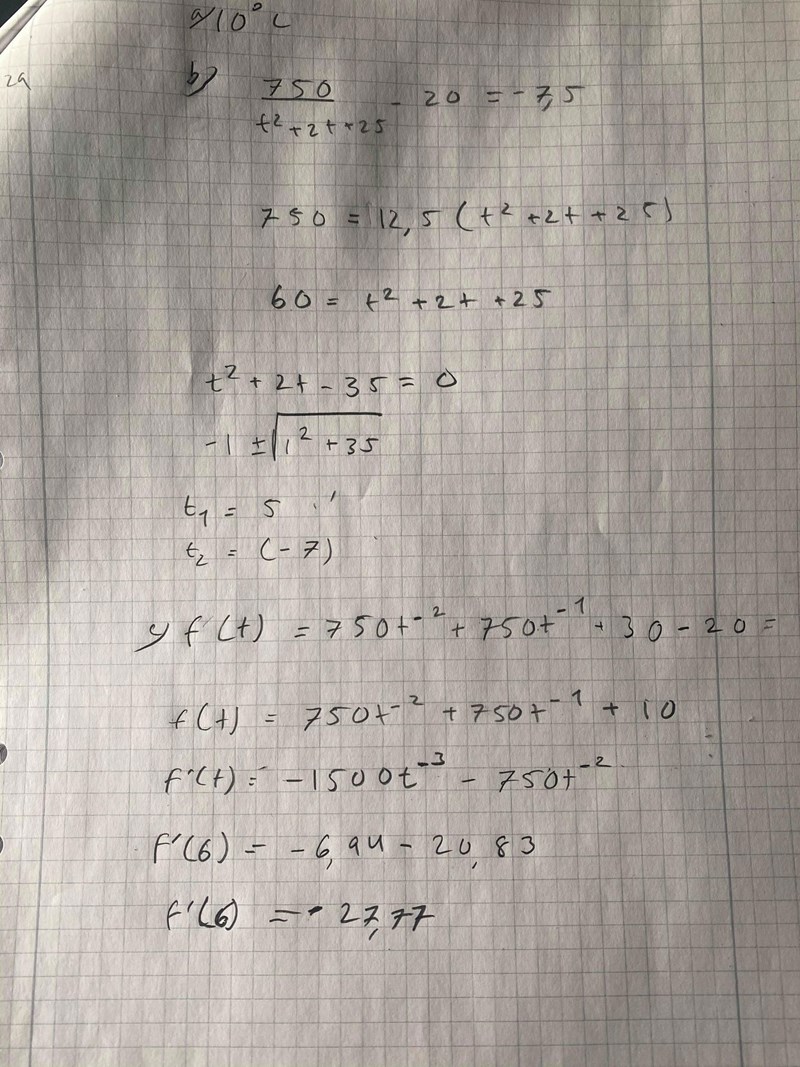 a) 10° C
29
b) 750/(t² + 2t + 25) - 20 = -7,5
750 = 12,5 (t² + 2t + 25)
60 = t² + 2t + 25
t² + 2t - 35 = 0
-1 ± √(1² + 35)
t₁ = 5
t₂ = (-7)
c) f(t) = 750t⁻² + 750t⁻¹ + 30 - 20 =
f(t) = 750t⁻² + 750t⁻¹ + 10
f'(t) = -1500t⁻³ - 750t⁻²
f'(6) = -6,94 - 20,83
f'(6) = -27,77